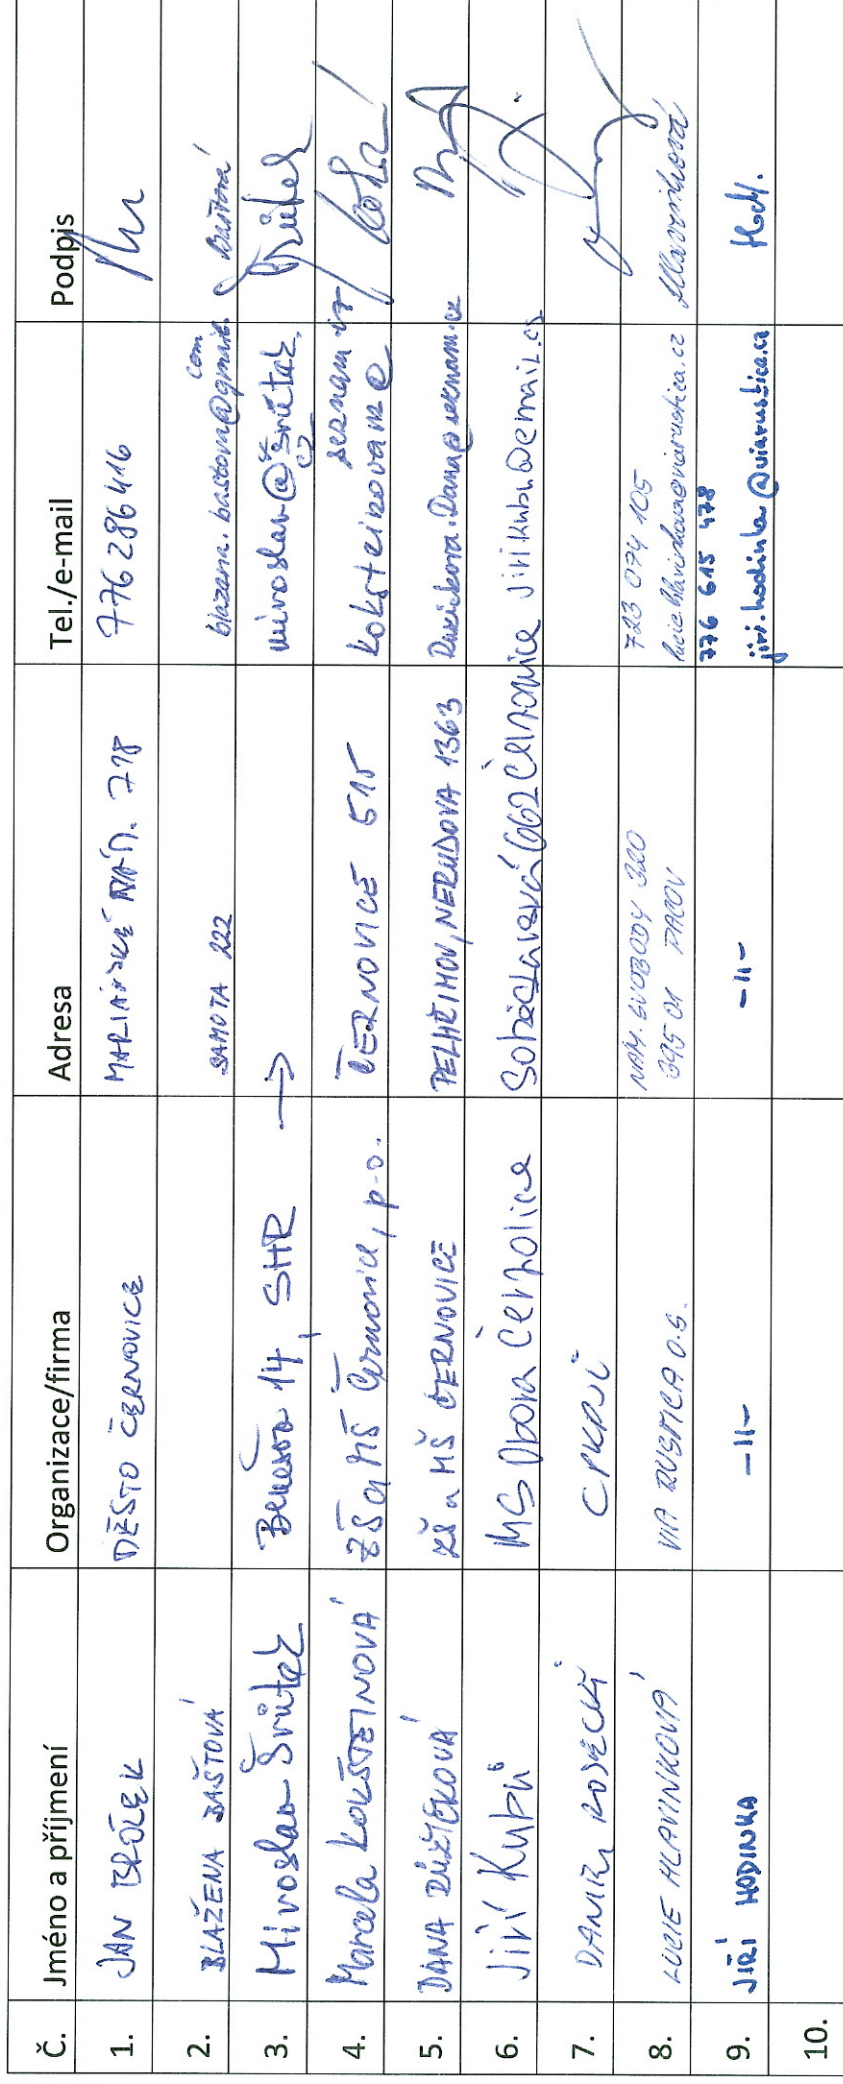 Č. Jméno a příjmení Organizace/firma Adresa Tel./e-mail Podpis
1. JAN BRŮŽEK MĚSTO ČERNOVICE MARIÁNSKÉ NÁM. 718 776 286 416
com
2. BLAŽENA BAŠTOVÁ SAMOTA 222 blazena.bastova@gmail. Baštová
3. Miroslav Švůtek Benešov 14, SHR → miroslav@švůtek.
cz
seznam.cz
4. Marcela KOKŠTEINOVÁ ZŠ a MŠ Černovice, p.o. ČERNOVICE 515 koksteinovam@
5. DANA RŮŽIČKOVÁ ZŠ a MŠ ČERNOVICE PELHŘIMOV, NERUDOVA 1363 Ruzickova.Dana@seznam.cz
6. Jiří Kubů MS Obora Černovice Soběslavská 662 Černovice jiri.kubu@email.cz
7. DANIEL CPKPJČ
723 074 105
8. LUCIE HLAVINKOVÁ VIA RUSTICA O.S. NÁM. SVOBODY 320 lucie.hlavinkova@viarustica.cz Hlavinková
395 01 PACOV
776 615 478
9. JIŘÍ HODINKA -II- -II- jiri.hodinka@viarustica.cz Hod.
10.